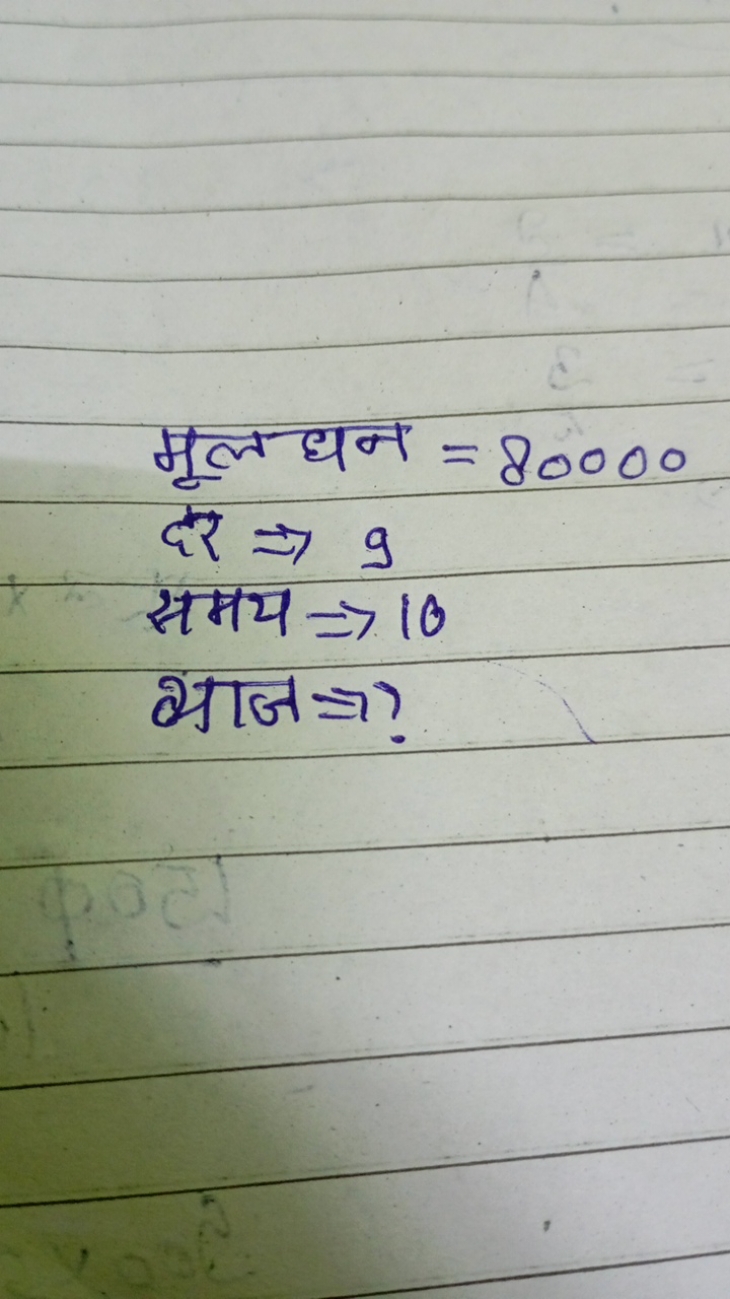 मूलधन = 80000
दर ⇒ 9
समय ⇒ 10
ब्याज ⇒ ?